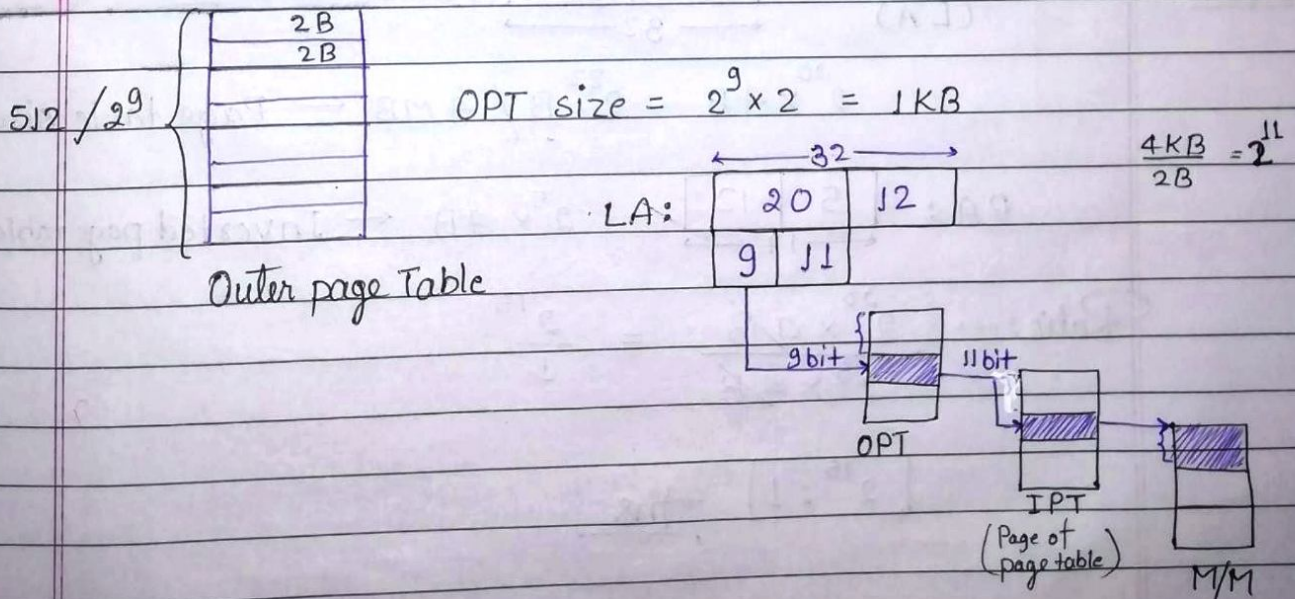 2B
2B
512/2⁹
OPT size = 2⁹ x 2 = 1KB
32
4KB/2B = 2¹¹
LA: 20 12
9 11
Outer page Table
9bit
11bit
OPT
IPT
(Page of
page table)
M/M